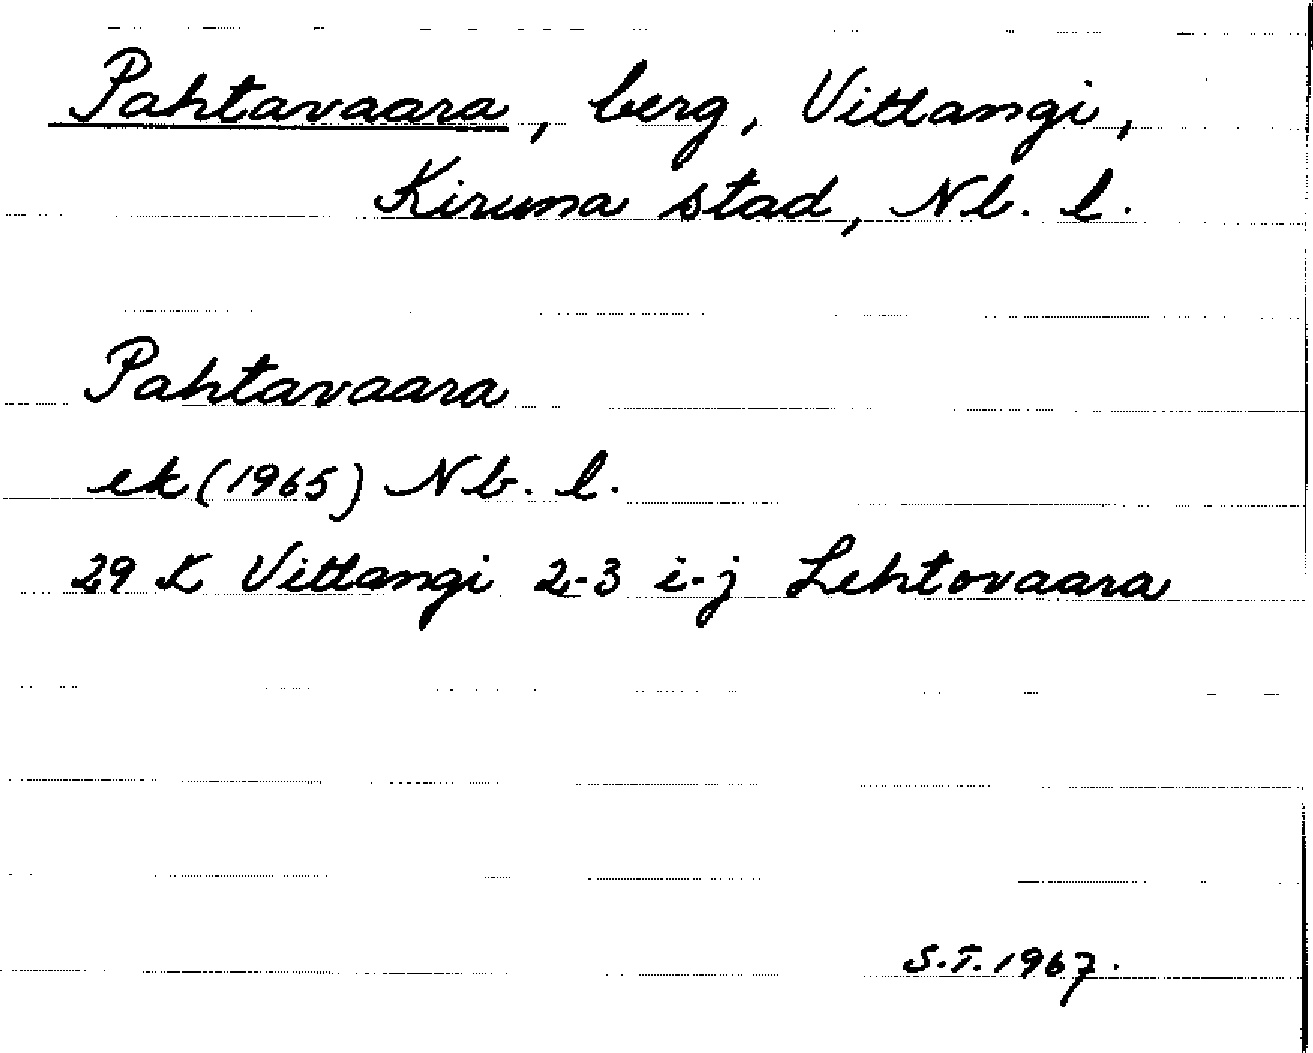 Pahtavaara, berg, Vittangi,
Kiruna stad, Nb. l.
Pahtavaara
ek (1965) Nb. l.
29 K Vittangi 2-3 i-j Lehtovaara
S.T. 1967.